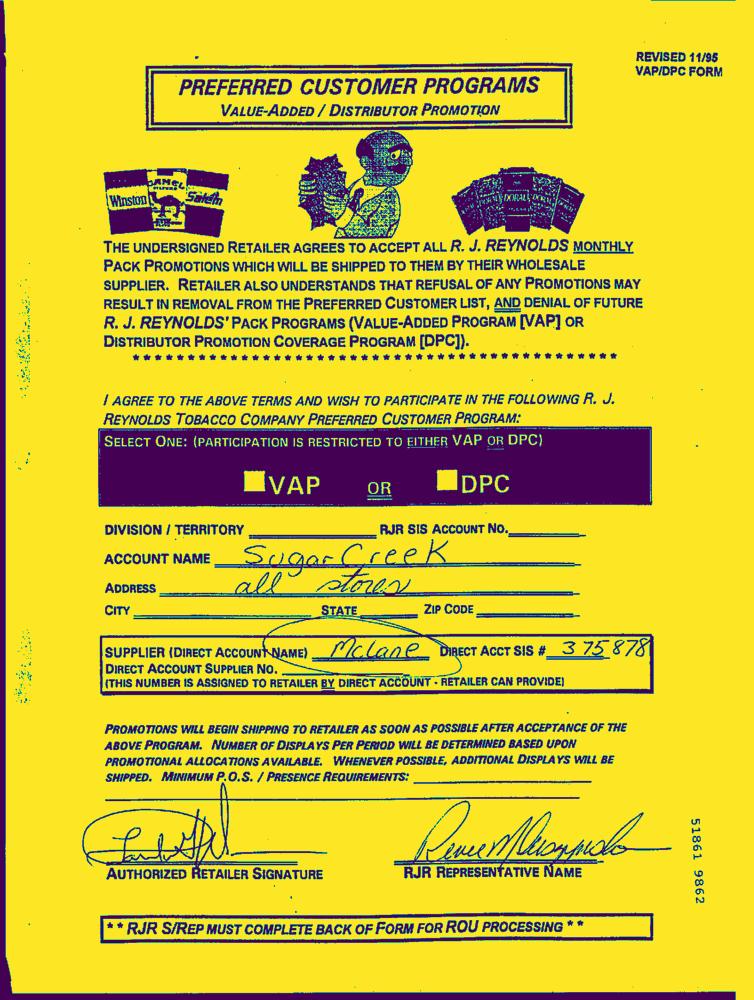 REVISED 11/95
VAP/DPC FORM
PREFERRED CUSTOMER PROGRAMS
VALUE-ADDED / DISTRIBUTOR PROMOTION
CAMEL
FILTERS
Winston
Salem
DORAL
THE UNDERSIGNED RETAILER AGREES TO ACCEPT ALL R. J. REYNOLDS MONTHLY
PACK PROMOTIONS WHICH WILL BE SHIPPED TO THEM BY THEIR WHOLESALE
SUPPLIER. RETAILER ALSO UNDERSTANDS THAT REFUSAL OF ANY PROMOTIONS MAY
RESULT IN REMOVAL FROM THE PREFERRED CUSTOMER LIST, AND DENIAL OF FUTURE
R. J. REYNOLDS' PACK PROGRAMS (VALUE-ADDED PROGRAM [VAP] OR
DISTRIBUTOR PROMOTION COVERAGE PROGRAM [DPC]).
I AGREE TO THE ABOVE TERMS AND WISH TO PARTICIPATE IN THE FOLLOWING R. J.
REYNOLDS TOBACCO COMPANY PREFERRED CUSTOMER PROGRAM:
SELECT ONE: (PARTICIPATION IS RESTRICTED TO EITHER VAP OR DPC)
VAP OR DPC
DIVISION / TERRITORY RJR SIS ACCOUNT NO.
ACCOUNT NAME Sugar Creek
ADDRESS all stores
CITY STATE ZIP CODE
SUPPLIER (DIRECT ACCOUNT NAME) McLane DIRECT ACCT SIS # 375878
DIRECT ACCOUNT SUPPLIER NO.
(THIS NUMBER IS ASSIGNED TO RETAILER BY DIRECT ACCOUNT - RETAILER CAN PROVIDE)
PROMOTIONS WILL BEGIN SHIPPING TO RETAILER AS SOON AS POSSIBLE AFTER ACCEPTANCE OF THE
ABOVE PROGRAM. NUMBER OF DISPLAYS PER PERIOD WILL BE DETERMINED BASED UPON
PROMOTIONAL ALLOCATIONS AVAILABLE. WHENEVER POSSIBLE, ADDITIONAL DISPLAYS WILL BE
SHIPPED. MINIMUM P.O.S. / PRESENCE REQUIREMENTS:
AUTHORIZED RETAILER SIGNATURE RJR REPRESENTATIVE NAME
51861 9862
** RJR S/REP MUST COMPLETE BACK OF FORM FOR ROU PROCESSING **